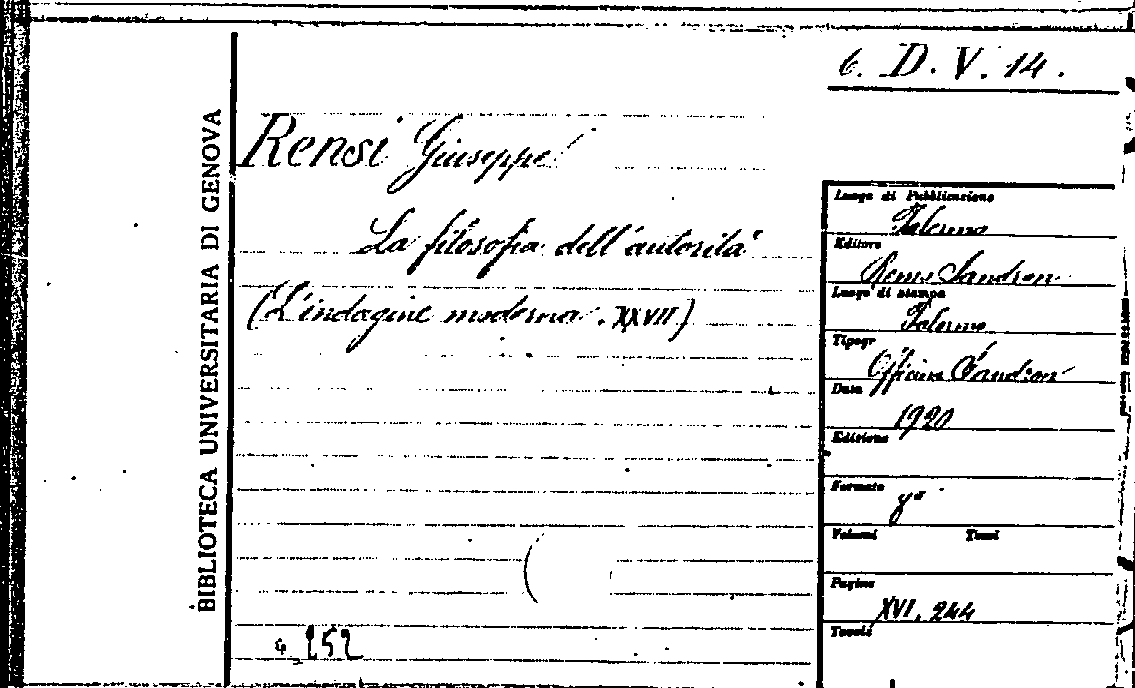 6. D. V. 14.
BIBLIOTECA UNIVERSITARIA DI GENOVA
Rensi Giuseppe
La filosofia dell'autorità
(L'indagine moderna. XXVII)
252
Luogo di Pubblicazione
Palermo
Editore
Remo Sandron
Luogo di stampa
Palermo
Tipogr
Officine Sandron
Data
1920
Edizione
Formato
Volumi Tomi
Pagine
XVI. 244
Tavole